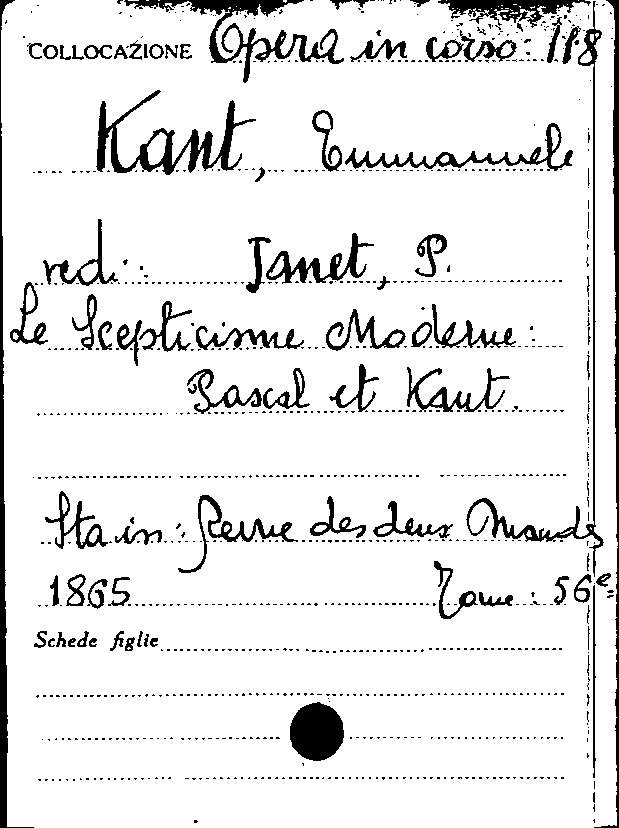 COLLOCAZIONE Opera in corso: 118
Kant, Emmanuele
vedi: Janet, P.
Le Scepticisme Moderne:
Pascal et Kant.
Sta in: Revue des deux Mondes
1865 Tome: 56e
Schede figlie